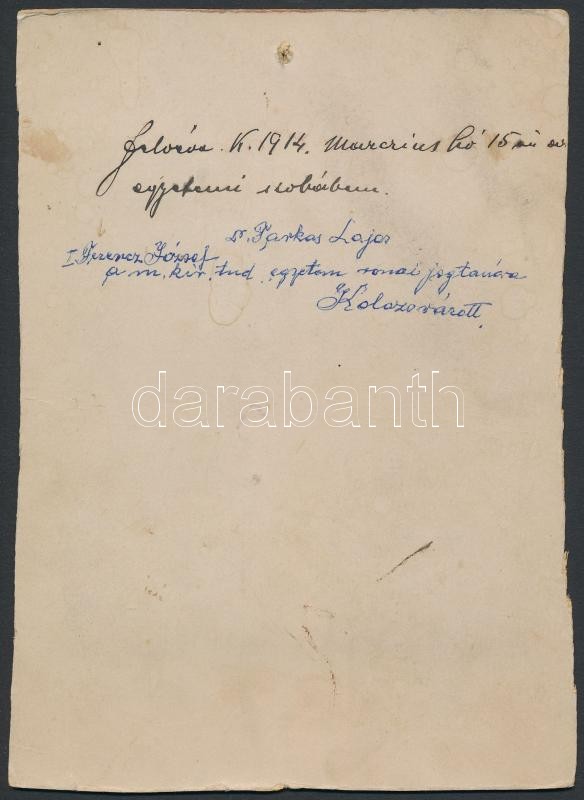 K. 1914. Marczius hó 15
egyetemi szobában.
Dr. Farkas Lajos
I Ferencz József
a m. kir. tud. egyetem romai jogtanára
Kolozsvárott.
darabanth